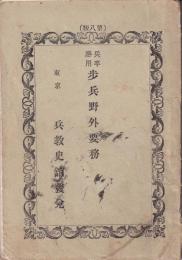 (第八版)
兵卒
適用
歩兵野外要務
東京
兵教史譜發兌